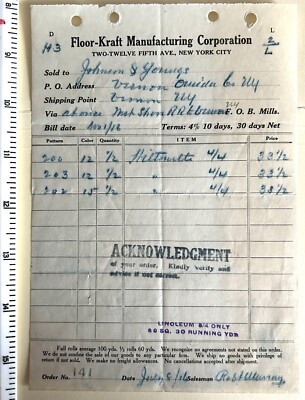 D L
H3 2/L
Floor-Kraft Manufacturing Corporation
TWO-TWELVE FIFTH AVE., NEW YORK CITY
Sold to Johnson & Youngs
P. O. Address Vernon Oneida Co NY
Shipping Point Vernon NY
Via F. O. B. Mills.
Bill date Nov 1/12 Terms: 4% 10 days, 30 days Net
Pattern Color Quantity ITEM PRICE
200 12 1/2 4/4 33 1/2
203 12 1/2 " 4/4 33 1/2
202 15 1/2 " 4/4 33 1/2
ACKNOWLEDGMENT
of your order. Kindly verify and
advise if not correct.
LINOLEUM 8/4 ONLY
60 SQ. 30 RUNNING YDS
Full rolls average 100 yds. ½ rolls 60 yds. We recognize no agreements not stated on this order.
We do not confine the sale of our goods to any particular firm. We sell no goods with privilege of
return and make no freight allowances. No cancellations accepted after shipment.
Order No. 141 Date July 8/12 Salesman Robt Murray